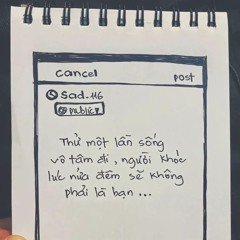 cancel post
sad.116
public
Thử một lần sống
vô tâm đi, người khóc
lúc nửa đêm sẽ không
phải là bạn ...